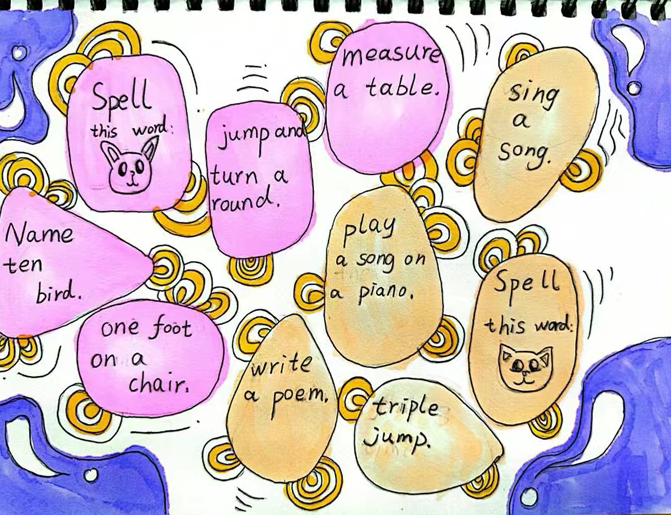 Spell
this word:
jump and
turn a
round.
measure
a table.
sing
a
song.
Name
ten
bird.
play
a song on
a piano.
Spell
this word:
one foot
on a
chair.
write
a poem.
triple
jump.